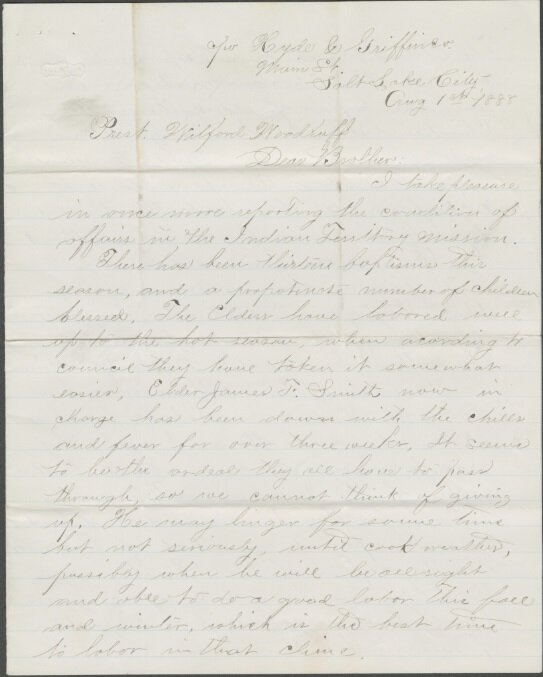 c/o Hyde & Griffin co.
Main St.
Salt Lake City
Aug 1st 1888
Prest. Wilford Woodruff
Dear Brother:
I take plesure
in once more reporting the condition of
affairs in the Indian Territory mission.
There has been thirtene baptisms this
season, and a propotinate number of children
blessed. The Elders have labored well
up to the hot season, when acording to
council they have taken it somewhat
easier, Elder James F. Smith now in
charge has been down with the chills
and fever for over three weeks. It seems
to be the ordeal they all have to pass
through, so we cannot think of giving
up. He may linger for some time
but not seriously, until cool weather,
possibly when he will be all right
and able to do a good labor this fall
and winter, which is the best time
to labor in that clime.